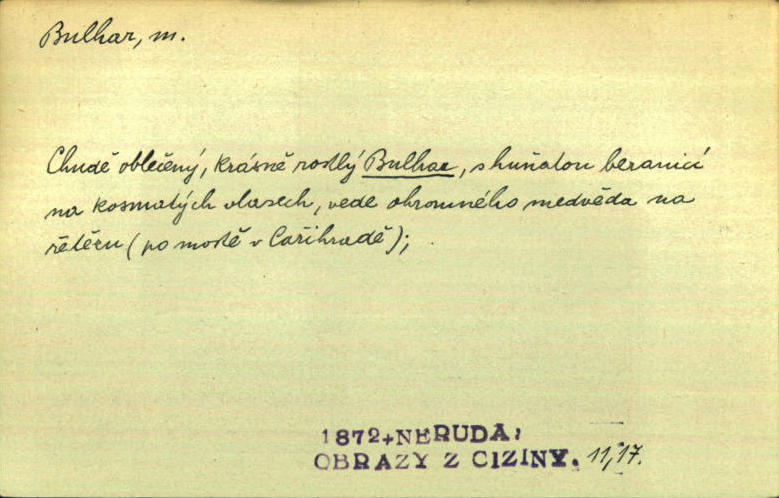 Bulhar, m.
Chudě oblečený, krásně rostlý Bulhar, s huňatou beranicí
na kosmatých vlasech, vede ohromného medvěda na
řetězu (po mostě v Cařihradě);
1872+NERUDA,
OBRAZY Z CIZINY. 11,17.